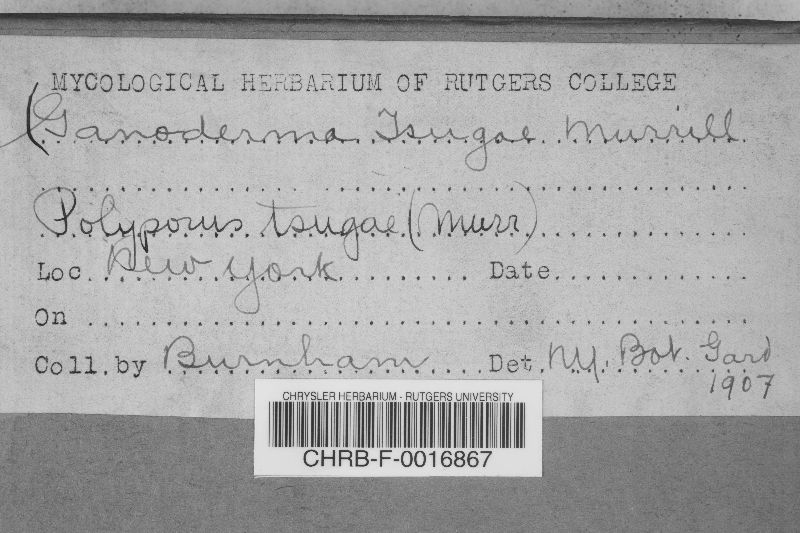 MYCOLOGICAL HERBARIUM OF RUTGERS COLLEGE
(Ganoderma Tsugae Murrill
Polyporus tsugae (Murr)
Loc. New York Date
On
Coll. by Burnham Det. N.Y. Bot. Gard
1907
CHRYSLER HERBARIUM - RUTGERS UNIVERSITY
CHRB-F-0016867